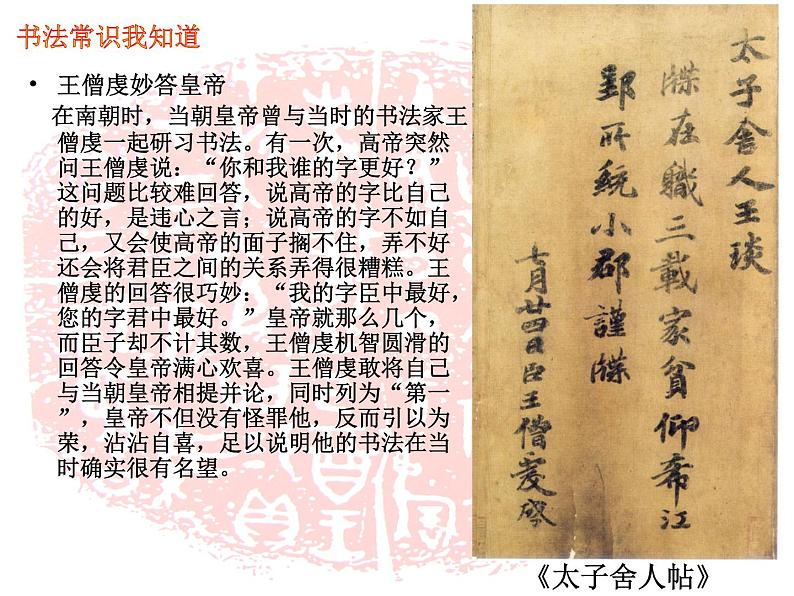 书法常识我知道
• 王僧虔妙答皇帝
在南朝时，当朝皇帝曾与当时的书法家王
僧虔一起研习书法。有一次，高帝突然
问王僧虔说：“你和我谁的字更好？”
这问题比较难回答，说高帝的字比自己
的好，是违心之言；说高帝的字不如自
己，又会使高帝的面子搁不住，弄不好
还会将君臣之间的关系弄得很糟糕。王
僧虔的回答很巧妙：“我的字臣中最好，
您的字君中最好。”皇帝就那么几个，
而臣子却不计其数，王僧虔机智圆滑的
回答令皇帝满心欢喜。王僧虔敢将自己
与当朝皇帝相提并论，同时列为“第一
”，皇帝不但没有怪罪他，反而引以为
荣，沾沾自喜，足以说明他的书法在当
时确实很有名望。
太子舍人王琰
牒在職三載家貧仰希江
郢所統小郡謹牒
七月廿四日臣王僧虔
《太子舍人帖》